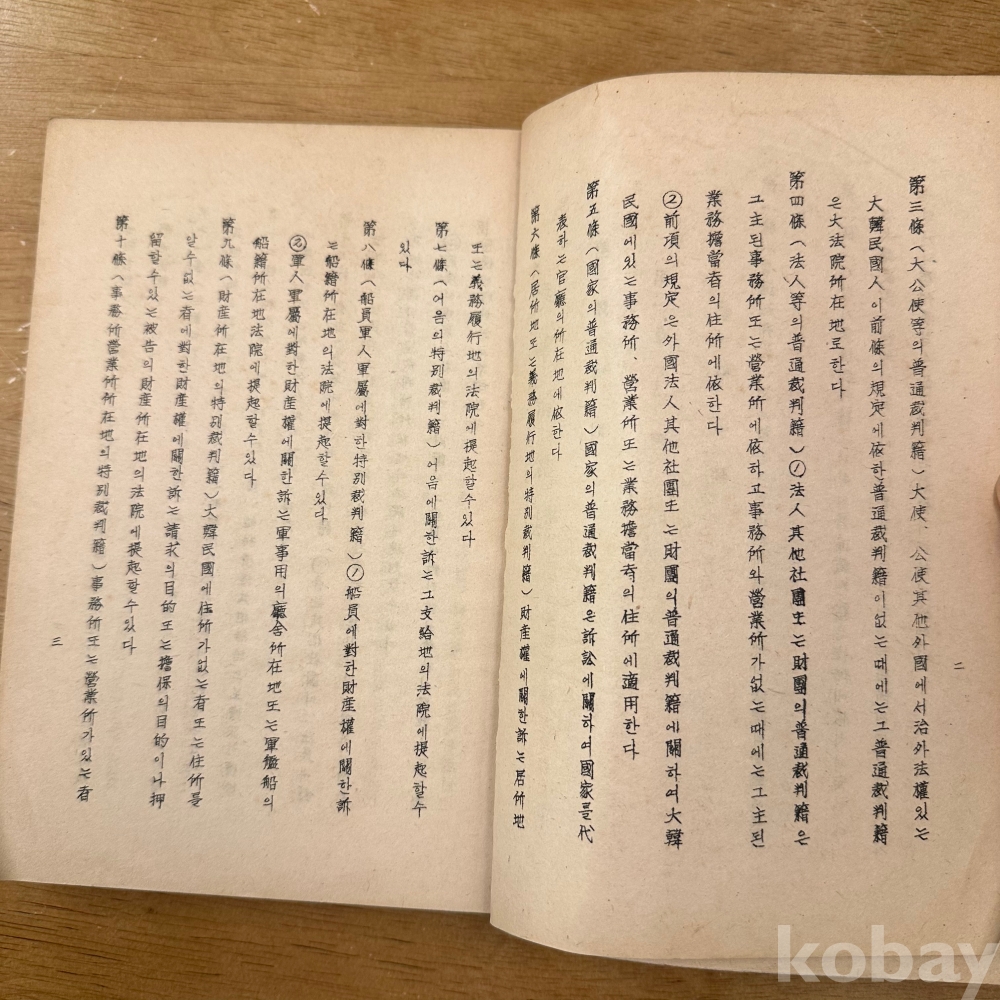 第三條(大公使等의普通裁判籍)大使、公使其他外國에서治外法權있는
大韓民國人이前條의規定에依한普通裁判籍이없는때에는그普通裁判籍
은大法院所在地로한다
第四條(法人等의普通裁判籍)①法人其他社團또는財團의普通裁判籍은
그主된事務所또는營業所에依하고事務所와營業所가없는때에는그主된
業務擔當者의住所에依한다
②前項의規定은外國法人其他社團또는財團의普通裁判籍에關하여大韓
民國에있는事務所、營業所또는業務擔當者의住所에適用한다
第五條(國家의普通裁判籍)國家의普通裁判籍은訴訟에關하여國家를代
表하는官廳의所在地에依한다
第六條(居所地또는義務履行地의特別裁判籍)財産權에關한訴는居所地
二
또는義務履行地의法院에提起할수있다
第七條(어음의特別裁判籍)어음에關한訴는그支給地의法院에提起할수
있다
第八條(船員軍人軍屬에對한特別裁判籍)①船員에對한財産權에關한訴
는船籍所在地의法院에提起할수있다
②軍人軍屬에對한財産權에關한訴는軍事用의廳舍所在地또는軍艦船의
船籍所在地法院에提起할수있다
第九條(財産所在地의特別裁判籍)大韓民國에住所가없는者또는住所를
알수없는者에對한財産權에關한訴는請求의目的또는擔保의目的이나押
留할수있는被告의財産所在地의法院에提起할수있다
第十條(事務所營業所所在地의特別裁判籍)事務所또는營業所가있는者
三
kobay